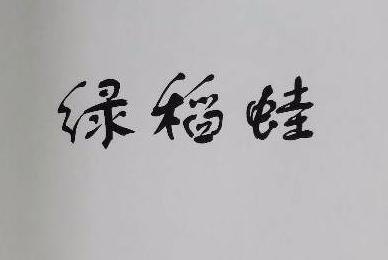 绿稻蛙